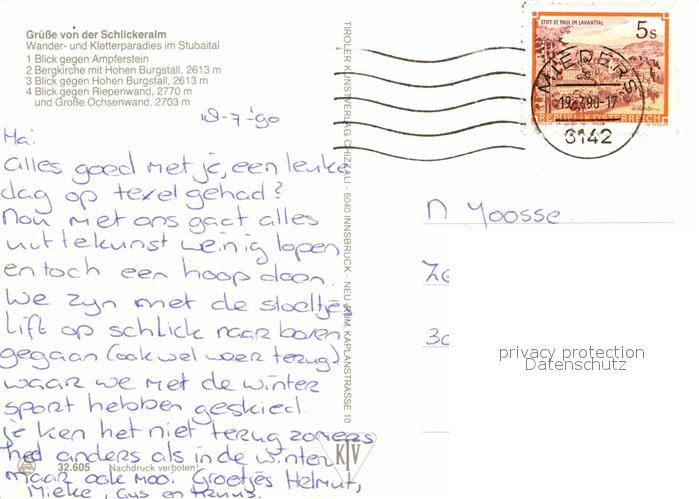 Grüße von der Schlickeralm
Wander- und Kletterparadies im Stubaital
1 Blick gegen Ampferstein
2 Bergkirche mit Hohen Burgstall, 2613 m
3 Blick gegen Hohen Burgstall, 2613 m
4 Blick gegen Riepenwand, 2770 m
und Große Ochsenwand, 2703 m
19-7-'90
Hai
alles goed met je, een leuke
dag op texel gehad?
Nou met ons gaat alles
uittekunst weinig lopen
en toch een hoop doen.
We zyn met de stoeltjes
lift op schlick naar boven
gegaan (ook wel weer terug)
waar we met de winter
sport hebben geskied.
je ken het niet terug zomers
heel anders als in de winter
maar ook mooi. Groetjes Helmut,
Mieke, Gus en
32.605 Nachdruck verboten
KTV
TIROLER KUNSTVERLAG CHIZZALI - 6040 INNSBRUCK - NEU-RUM, KAPLANSTRASSE 10
STIFT ST. PAUL IM LAVANTTAL
5s
REPUBLIK ÖSTERREICH
MIEDERS
19.7.90-17
6142
Yoosse
privacy protection
Datenschutz